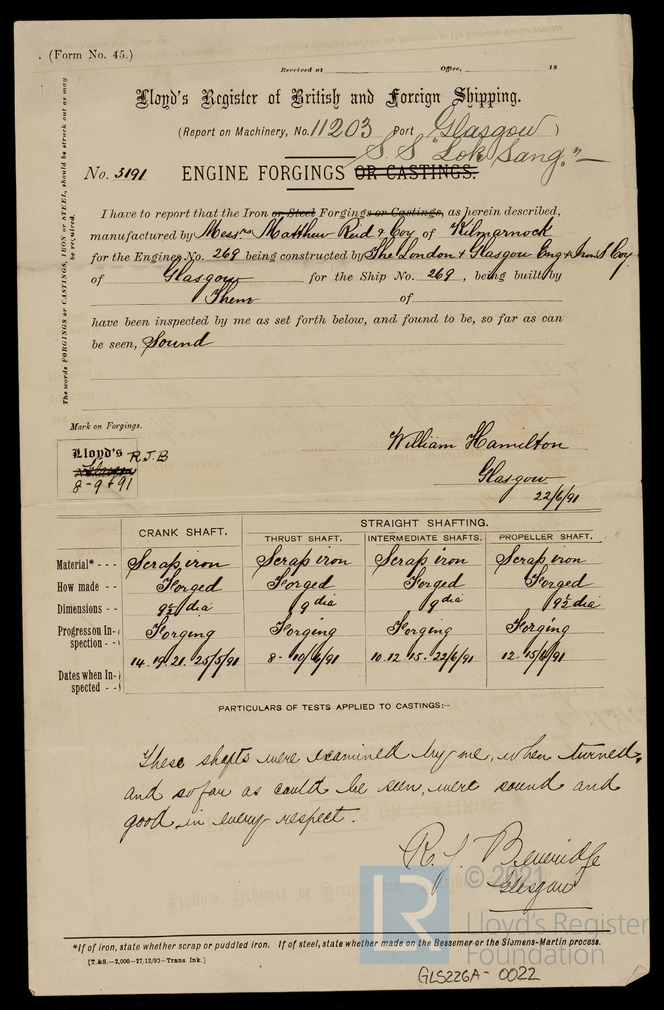 (Form No. 45.)
Received at Office, 18
Lloyd's Register of British and Foreign Shipping.
(Report on Machinery, No. 11203 Port Glasgow)
S.S "Lok Sang."
No. 3191 ENGINE FORGINGS OR CASTINGS.
The words FORGINGS or CASTINGS, IRON or STEEL, should be struck out as may be required.
I have to report that the Iron or Steel Forgings or Castings, as herein described,
manufactured by Messrs Matthew Reid & Coy of Kilmarnock
for the Engines No. 269 being constructed by The London & Glasgow Eng & Iron S Coy
of Glasgow for the Ship No. 269, being built by
Them of
have been inspected by me as set forth below, and found to be, so far as can
be seen, Sound
Mark on Forgings.
Lloyd's R.J.B
8-9-91
William Hamilton
Glasgow
22/6/91
CRANK SHAFT. STRAIGHT SHAFTING.
THRUST SHAFT. INTERMEDIATE SHAFTS. PROPELLER SHAFT.
Material* - - Scrap iron Scrap iron Scrap iron Scrap iron
How made - Forged Forged Forged Forged
Dimensions - - 9½ dia 9 dia 9 dia 9½ dia
Progress on In- Forging Forging Forging Forging
spection - -
14. 19. 21. 25/5/91 8- 10/6/91 10. 12. 15. 22/6/91 12. 15/6/91
Dates when In-
spected - -
PARTICULARS OF TESTS APPLIED TO CASTINGS:-
These shafts were examined by me, when turned,
and so far as could be seen, were sound and
good in every respect.
R. J. Beveridge
Glasgow
*If of iron, state whether scrap or puddled iron. If of steel, state whether made on the Bessemer or the Siemens-Martin process.
[T.&S.—2,000—17/12/90—Trans Ink.]
LR © 2021
Lloyd's Register
Foundation
GLS226A- 0022